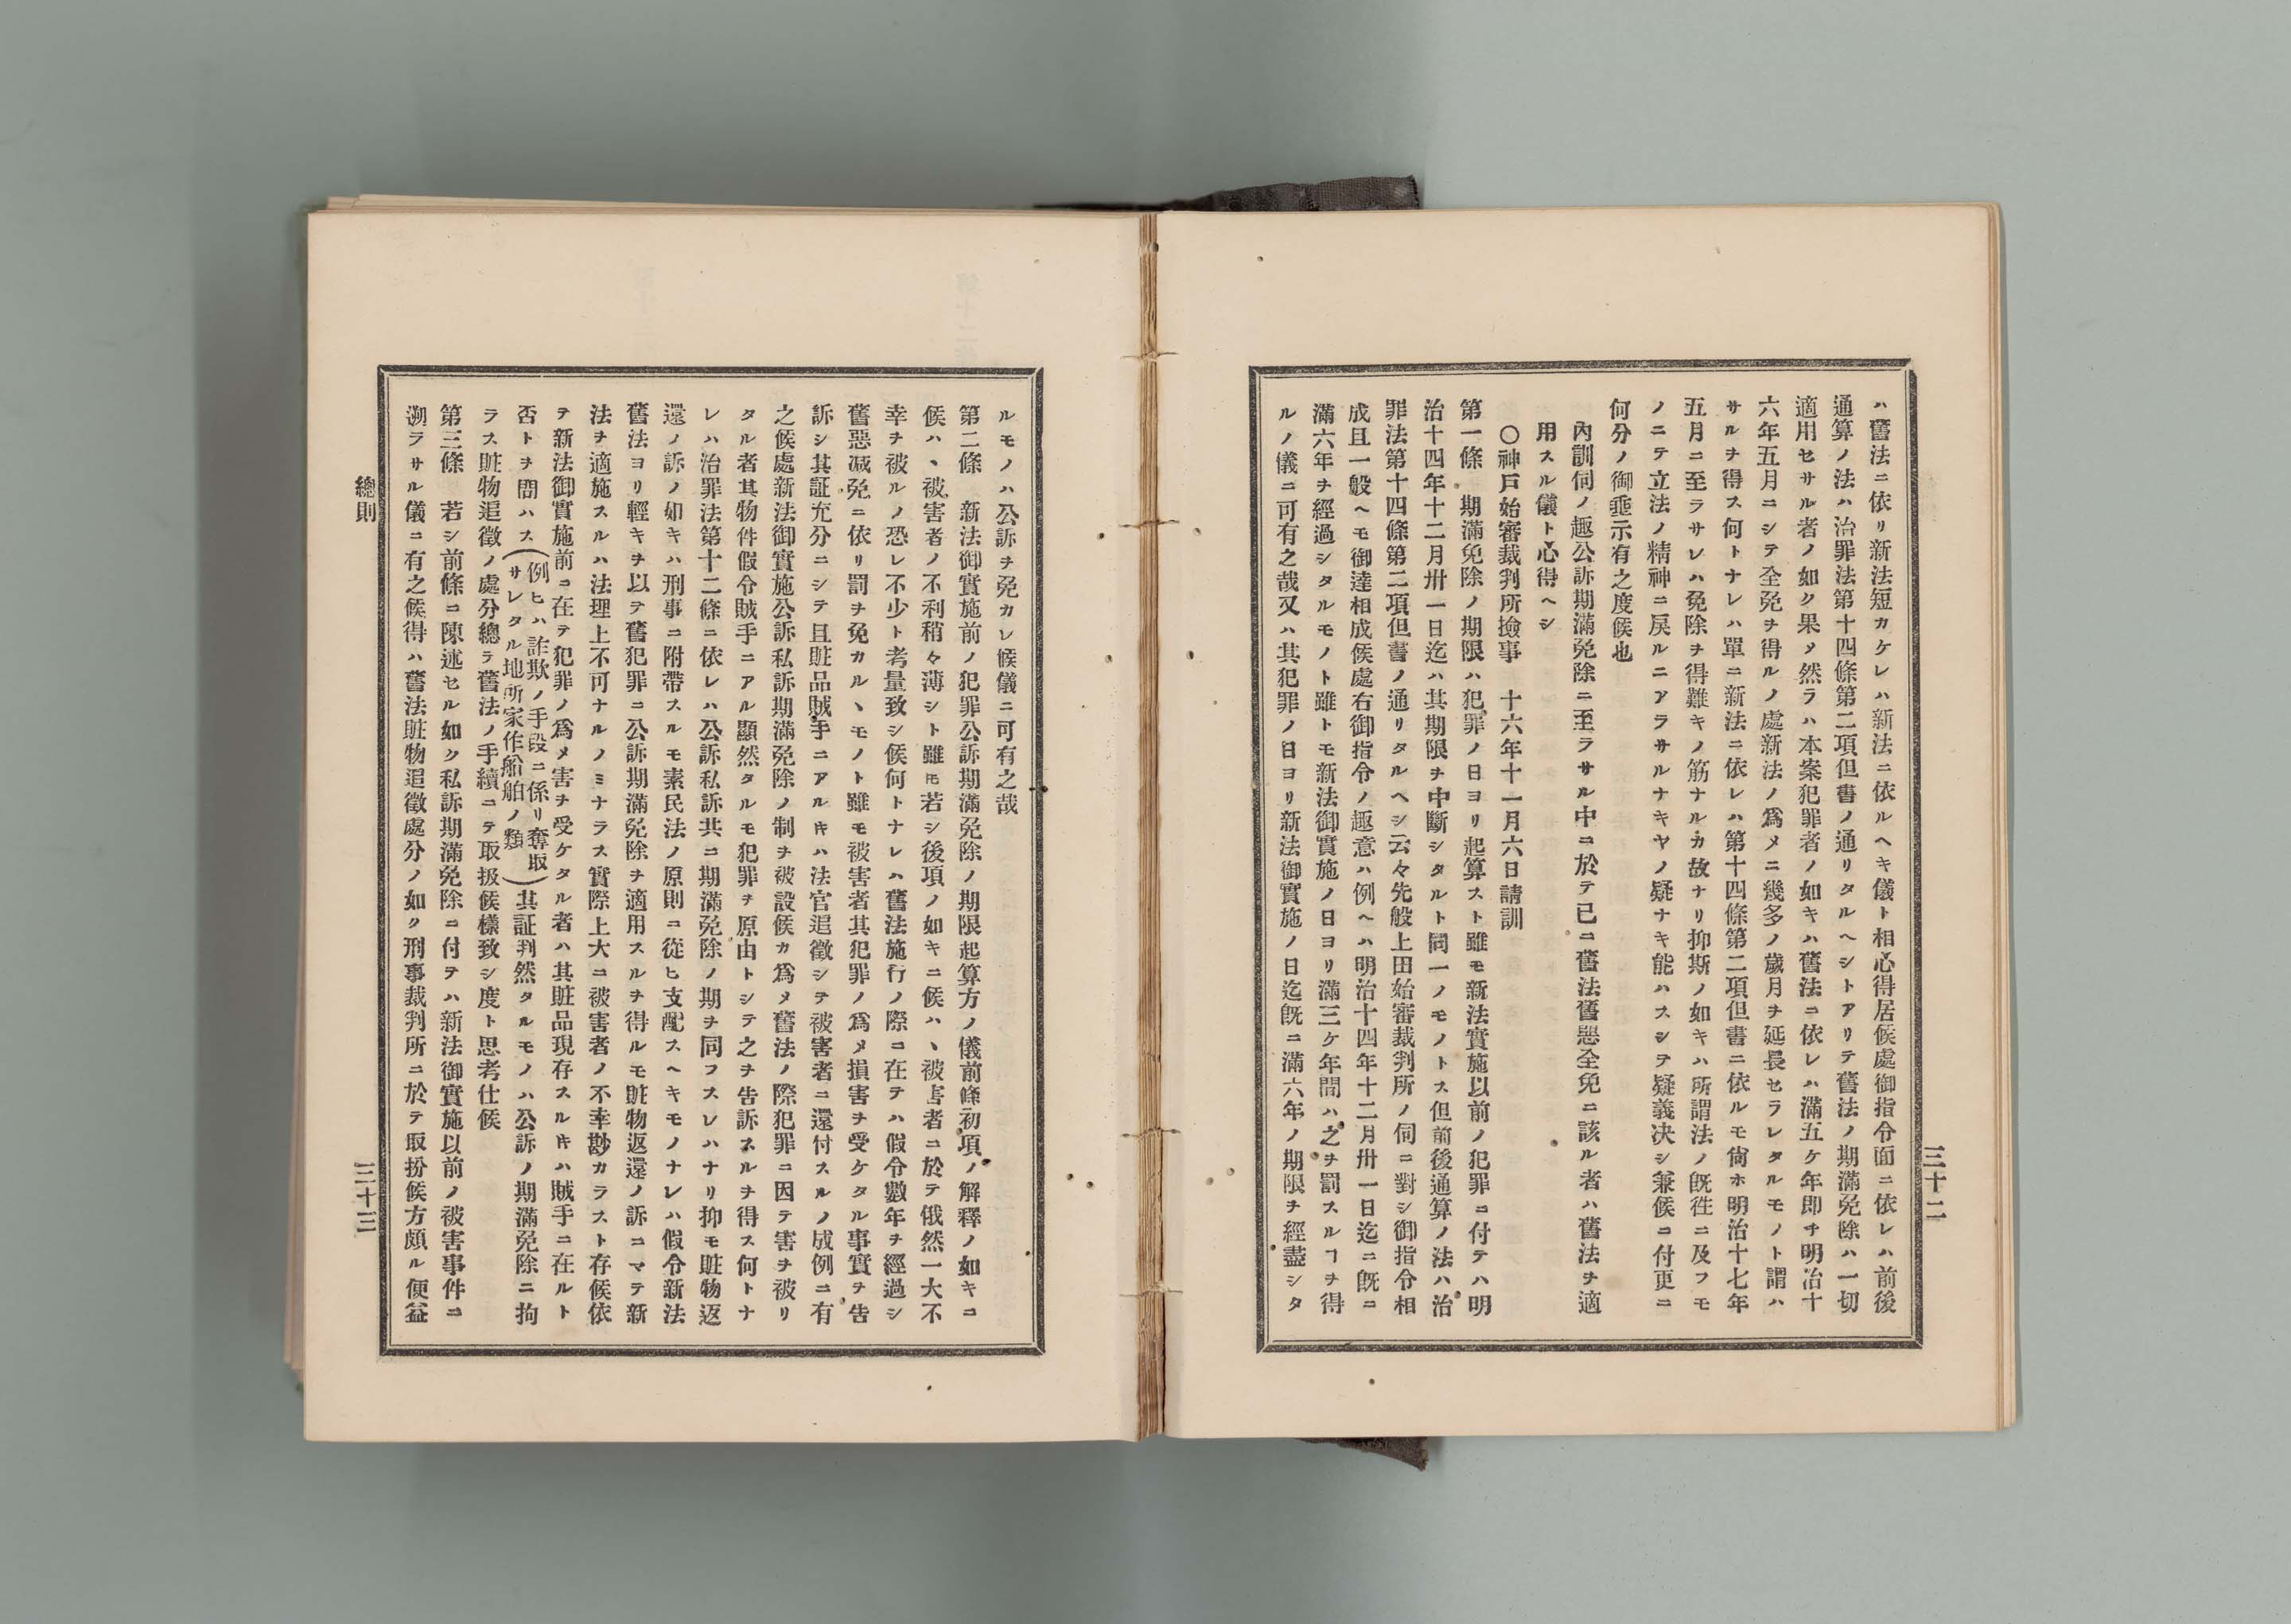 三十二
ハ舊法ニ依リ新法短カケレハ新法ニ依ルヘキ儀ト相心得居候處御指令面ニ依レハ前後
通算ノ法ハ治罪法第十四條第二項但書ノ通リタルヘシトアリテ舊法ノ期滿免除ハ一切
適用セサル者ノ如ク果メ然ラハ本案犯罪者ノ如キハ舊法ニ依レハ滿五ケ年即チ明治十
六年五月ニシテ全免ヲ得ルノ處新法ノ爲メニ幾多ノ歲月ヲ延長セラレタルモノト謂ハ
サルヲ得ス何トナレハ單ニ新法ニ依レハ第十四條第二項但書ニ依ルモ尙ホ明治十七年
五月ニ至ラサレハ免除ヲ得難キノ筋ナルカ故ナリ抑斯ノ如キハ所謂法ノ旣徃ニ及フモ
ノニテ立法ノ精神ニ戾ルニアラサルナキヤノ疑ナキ能ハスシテ疑義决シ兼候ニ付更ニ
何分ノ御垂示有之度候也
內訓伺ノ趣公訴期滿免除ニ至ラサル中ニ於テ已ニ舊法舊惡全免ニ該ル者ハ舊法ヲ適
用スル儀ト心得ヘシ
〇神戶始審裁判所撿事　十六年十一月六日請訓
第一條　期滿免除ノ期限ハ犯罪ノ日ヨリ起算スト雖モ新法實施以前ノ犯罪ニ付テハ明
治十四年十二月卅一日迄ハ其期限ヲ中斷シタルト同一ノモノトス但前後通算ノ法ハ治
罪法第十四條第二項但書ノ通リタルヘシ云々先般上田始審裁判所ノ伺ニ對シ御指令相
成且一般ヘモ御達相成候處右御指令ノ趣意ハ例ヘハ明治十四年十二月卅一日迄ニ旣ニ
滿六年ヲ經過シタルモノト雖トモ新法御實施ノ日ヨリ滿三ケ年間ハ之ヲ罰スルヿヲ得
ルノ儀ニ可有之哉又ハ其犯罪ノ日ヨリ新法御實施ノ日迄旣ニ滿六年ノ期限ヲ經盡シタ
ルモノハ公訴ヲ免カレ候儀ニ可有之哉
第二條　新法御實施前ノ犯罪公訴期滿免除ノ期限起算方ノ儀前條初項ノ解釋ノ如キニ
候ハヽ被害者ノ不利稍々薄シト雖ㇳモ若シ後項ノ如キニ候ハヽ被害者ニ於テ俄然一大不
幸ヲ被ルノ恐レ不少ト考量致シ候何トナレハ舊法施行ノ際ニ在テハ假令數年ヲ經過シ
舊惡减免ニ依リ罰ヲ免カルヽモノト雖モ被害者其犯罪ノ爲メ損害ヲ受ケタル事實ヲ告
訴シ其証充分ニシテ且贓品賊手ニアルㇳキハ法官追徵シテ被害者ニ還付スルノ成例ニ有
之候處新法御實施公訴私訴期滿免除ノ制ヲ被設候カ爲メ舊法ノ際犯罪ニ因テ害ヲ被リ
タル者其物件假令賊手ニアル顯然タルモ犯罪ヲ原由トシテ之ヲ告訴スルヲ得ス何トナ
レハ治罪法第十二條ニ依レハ公訴私訴共ニ期滿免除ノ期ヲ同フスレハナリ抑モ贓物返
還ノ訴ノ如キハ刑事ニ附帶スルモ素民法ノ原則ニ從ヒ支配スヘキモノナレハ假令新法
舊法ヨリ輕キヲ以テ舊犯罪ニ公訴期滿免除ヲ適用スルヲ得ルモ贓物返還ノ訴ニマテ新
法ヲ適施スルハ法理上不可ナルノミナラス實際上大ニ被害者ノ不幸尠カラスト存候依
テ新法御實施前ニ在テ犯罪ノ爲メ害ヲ受ケタル者ハ其贓品現存スルㇳキハ賊手ニ在ルト
否トヲ問ハス（例ヒハ詐欺ノ手段ニ係リ奪取
サレタル地所家作船舶ノ類）其証判然タルモノハ公訴ノ期滿免除ニ拘
ラス贓物追徵ノ處分總テ舊法ノ手續ニテ取扱候樣致シ度ト思考仕候
第三條　若シ前條ニ陳述セル如ク私訴期滿免除ニ付テハ新法御實施以前ノ被害事件ニ
溯ラサル儀ニ有之候得ハ舊法贓物追徵處分ノ如ク刑事裁判所ニ於テ取扮候方頗ル便益
總則
三十三